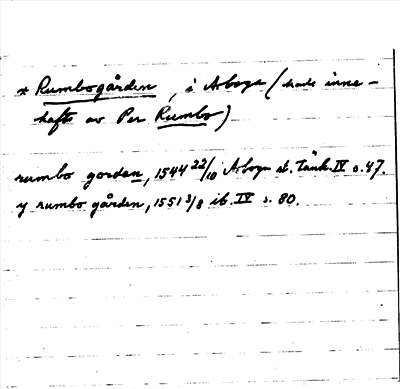 * Rumbogården, i Arboga (hade inne-
hafts av Per Rumbo)
rumbo gorden, 1544 22/10 Arboga st. Tänk. IV s. 47.
y rumbo gården, 1551 3/8 ib. IV s. 80.